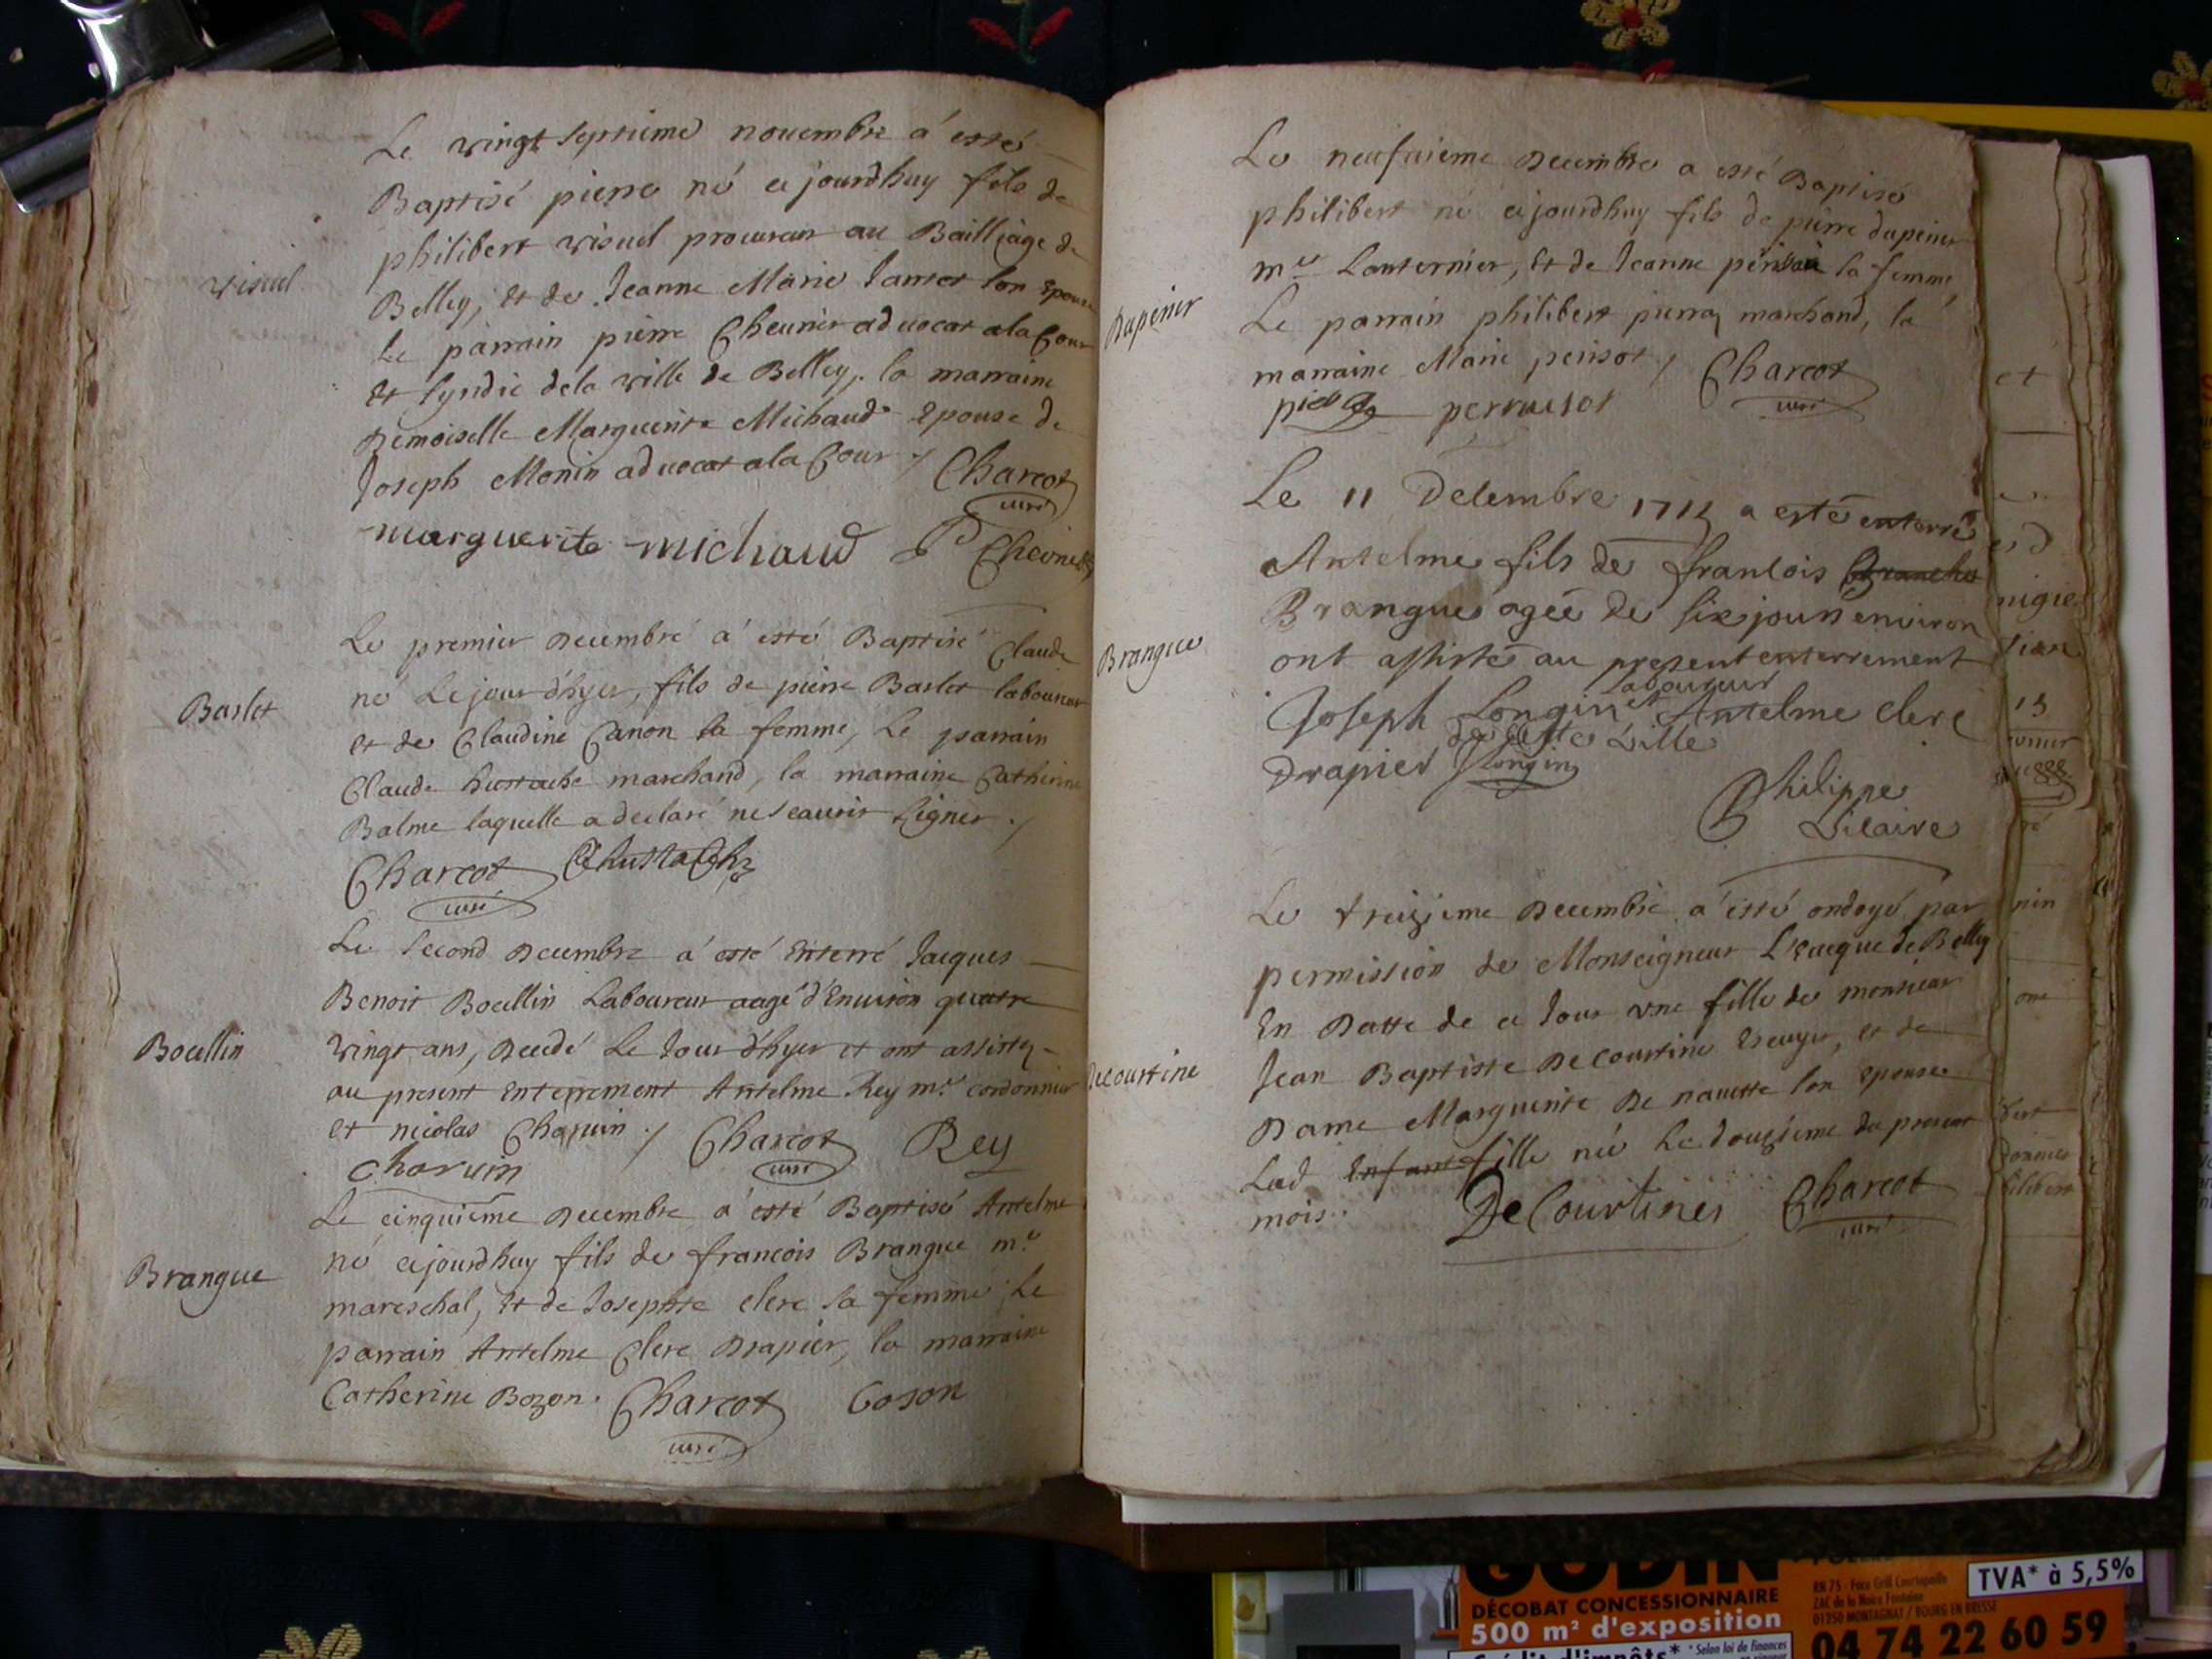 Le vingt septieme novembre a esté
Baptisé pierre né cejourdhuy fils de
philibert visuel procureur au Bailliage de
visuel
Belley, et de Jeanne Marie Jantet son Epouse
Le parrain pierre Cheurier advocat ala Cour
et syndic dela ville de Belley, la marraine
Demoiselle Marguerite Michaud Epouse de
Joseph Monin advocat ala Cour ./ Charcot
curé
marguerite michaud P Chevrier
Le premier Decembre a esté Baptisé Claude
né Le jour d'hyer, fils de pierre Barlet laboureur
Barlet
et de Claudine Canon sa femme, Le parrain
Claude hustache marchand, la marraine Catherine
Balme laquelle a declaré ne scauoir signer ./
Charcot Chustache
curé
Le second Decembre a esté Enterré Jacques
Benoit Bocllin Laboureur aagé d'Enuiron quatre
Bocllin
vingt ans, decedé Le Jour d'hyer et ont assistez
au present Enterrement Antelme Rey me. cordonnier
et nicolas Charuin ./ Charcot Rey
curé
Charuin
Le cinquieme Decembre a esté Baptisé Antelme
né cejourdhuy fils de francois Brangue me.
Brangue
mareschal, et de Josephte clerc sa femme, Le
parrain Antelme Clerc Drapier, la marraine
Catherine Bozon. Charcot Boson
curé
Le neufuieme Decembre a esté Baptisé
philibert né cejourdhuy fils de pierre dupenier
me Lanternier, et de Jeanne la femme,
Dupenier
Le parrain philibert marchand, la
marraine Marie perisot / Charcot
curé
perruisot
Le 11 Decembre 1712 a esté enterré
Antelme fils de francois Branche
Brangue agée de six jours environ
Brangue
ont assisté au present enterrement
laboureur
Joseph Longin et Antelme clerc
de cette Ville
Drapier JLongin
Philippe
Vicaire
Le treizieme Decembre a esté ondoyé par
permission de Monseigneur L'Eueque de Belley
En Datte de ce Jour vne fille de monsieur
Jean Baptiste De courtine Escuyer, et de
Decourtine
Dame Marguerite De nauette son Epouse
Lad Enfant fille née Le douzieme du present
mois. DeCourtines Charcot
curé
et
GODIN
DÉCOBAT CONCESSIONNAIRE
500 m² d'exposition
RN 75 - Face Grill Courtepaille
ZAC de la Noire Fontaine
01250 MONTAGNAT / BOURG EN BRESSE
TVA* à 5,5%
04 74 22 60 59
Crédit d'impôts* * Selon loi de finances